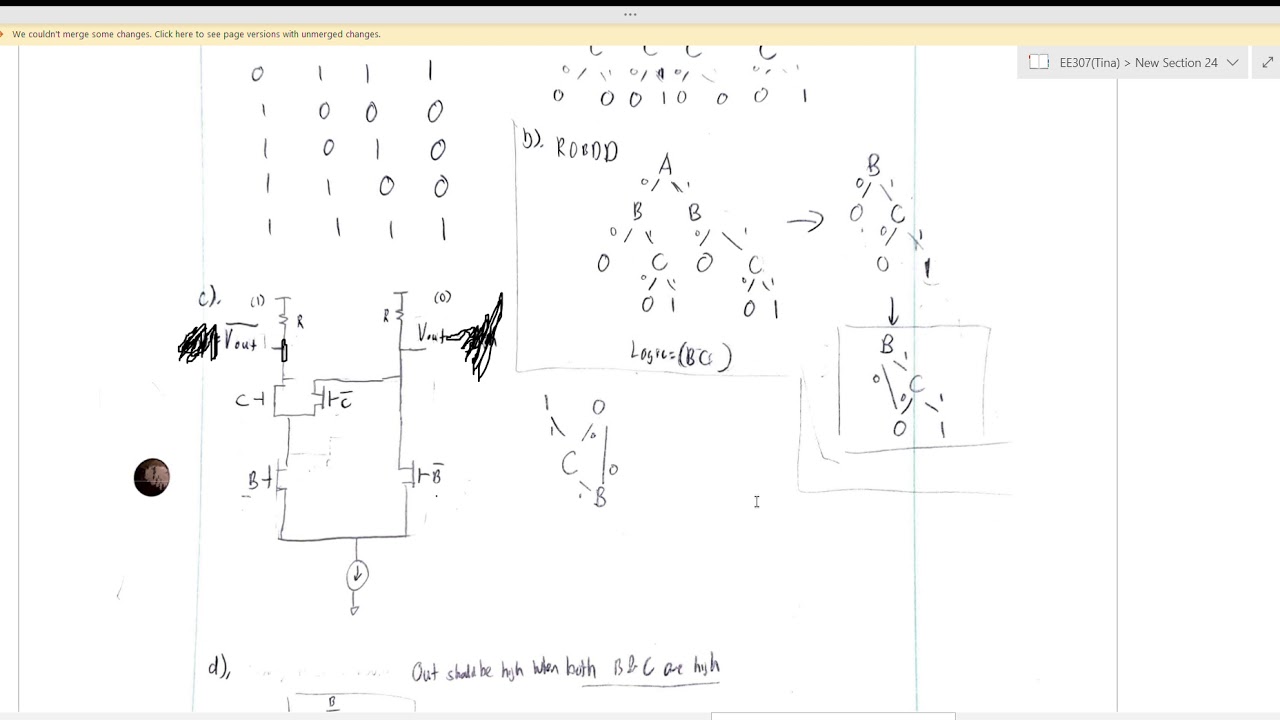 We couldn't merge some changes. Click here to see page versions with unmerged changes.
EE307(Tina) > New Section 24
0 1 1 1
1 0 0 0
1 0 1 0
1 1 0 0
1 1 1 1
C C C C
0 1 0 1 0 1 0 1
0 0 0 1 0 0 0 1
b). ROBDD
A
0 1
B B
0 1 0 1
0 C 0 C
0 1 0 1
0 1 0 1
Logic=(BC)
→
B
0 1
0 C
0 1
0 1
↓
B
1
0 C
0 1
0 1
c).
(1) (0)
R R
Vout Vout
C C̅
B B̅
1 0
1 0
C 0
1 B
d),
Out should be high when both B & C are high
B